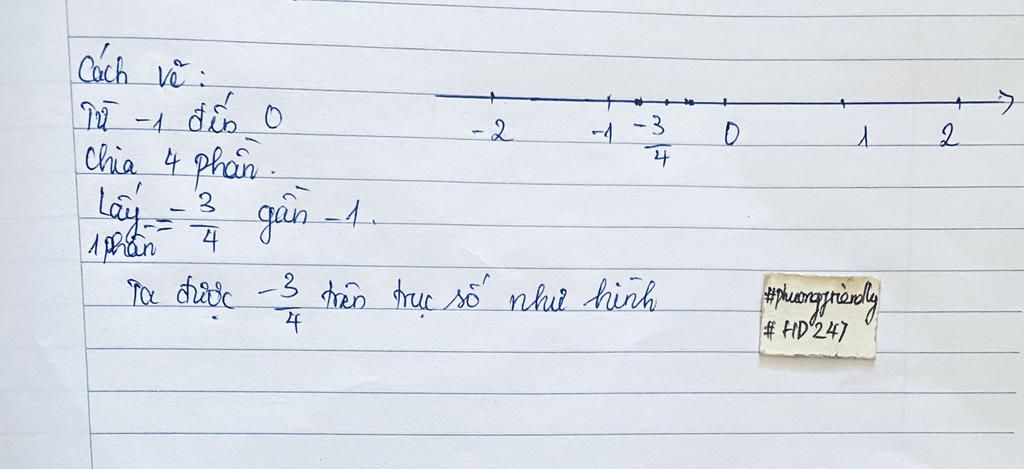 Cách vẽ:
Từ -1 đến 0
chia 4 phần.
Lấy 1 phần = -3/4 gần -1.
Ta được -3/4 trên trục số như hình
-2 -1 -3/4 0 1 2
#phuongfriendly
# HD247